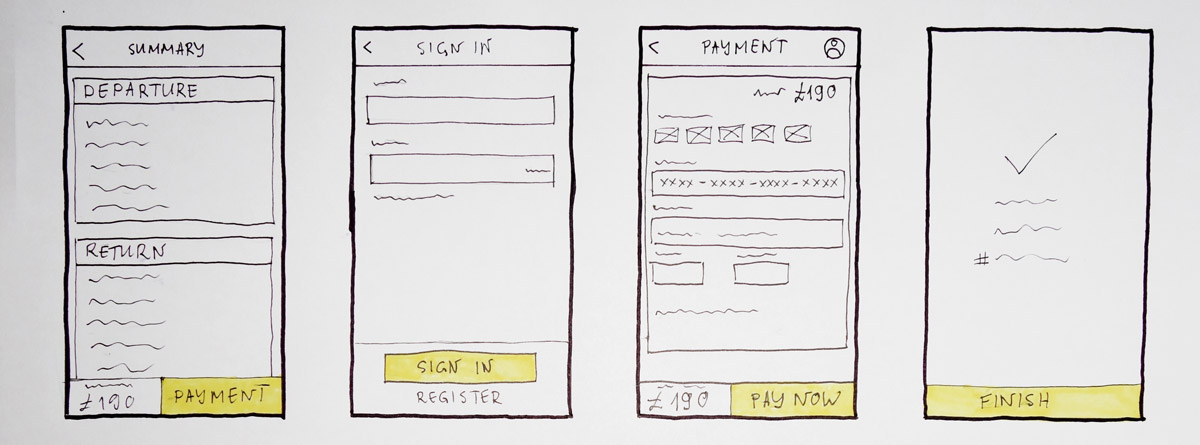 < SUMMARY
DEPARTURE
RETURN
£190 PAYMENT
< SIGN IN
SIGN IN
REGISTER
< PAYMENT
£190
XXXX-XXXX-XXXX-XXXX
£190 PAY NOW
#
FINISH